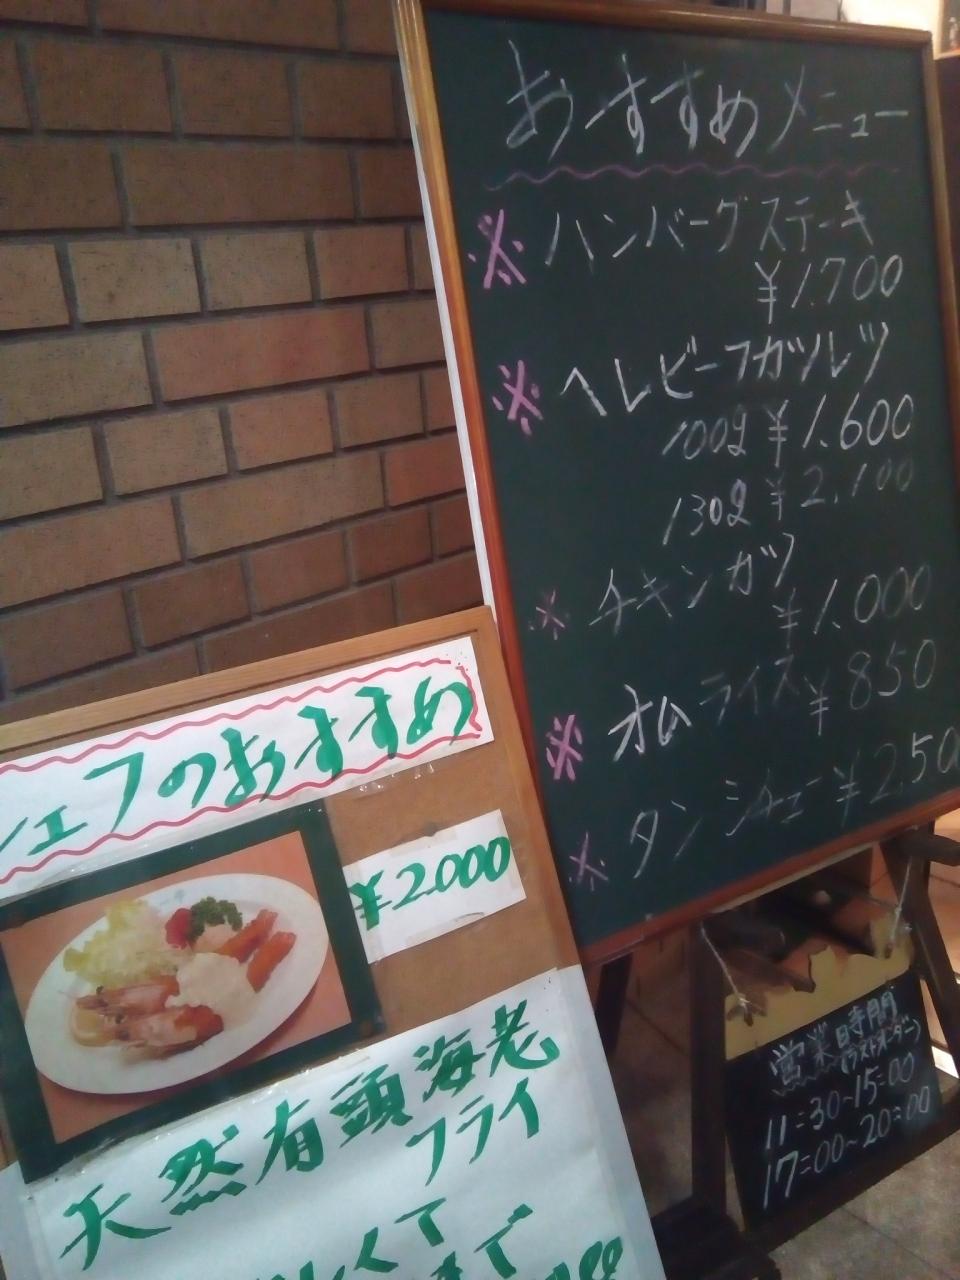 おすすめメニュー
※ ハンバーグステーキ
¥1.700
※ ヘレビーフカツレツ
100g ¥1.600
130g ¥2.100
※ チキンカツ
¥1.000
※ オムライス ¥850
※ タンシチュー ¥2.50
シェフのおすすめ
¥2000
天然有頭海老
フライ
営業時間
(ラストオーダー)
11:30~15:00
17:00~20:00